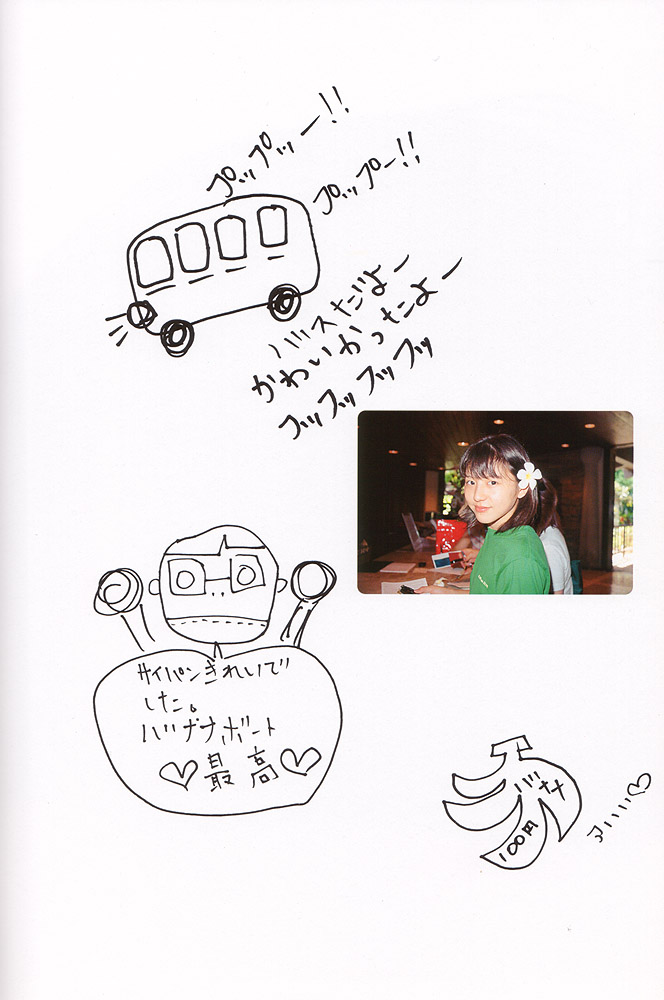 プップッー!!
プップー!!
バスだよー
かわいかったよー
フッフッフッフッ
サイパンきれいで
した。
バナナボート
♡最高♡
バナナ
100円